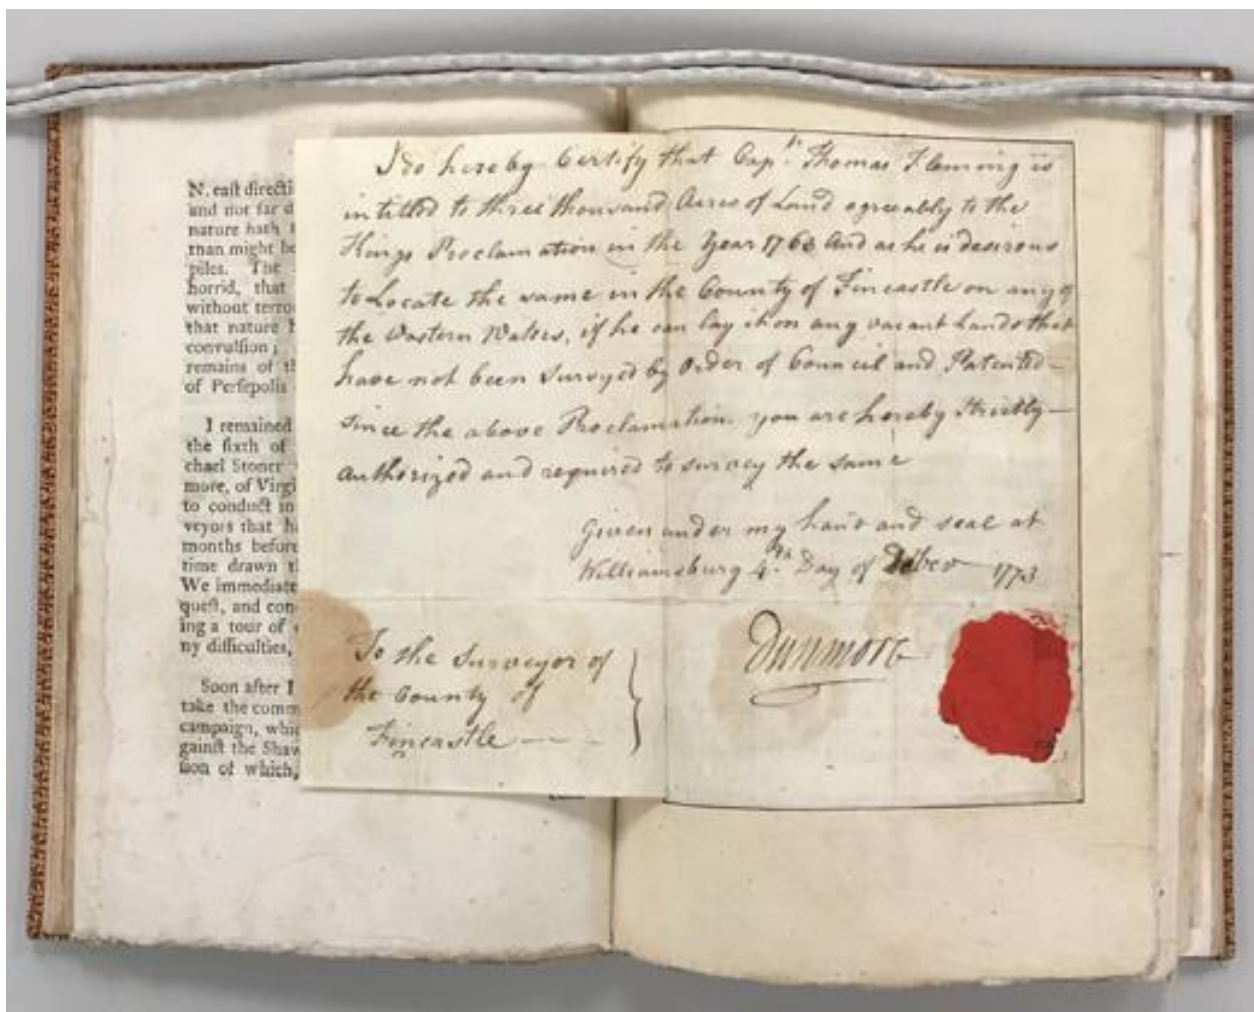 N. east directi
and not far d
nature hath t
than might be
piles. The
horrid, that
without terro
that nature h
convulsion;
remains of th
of Persepolis
I remained
the sixth of
chael Stoner
more, of Virgi
to conduct in
veyors that h
months before
time drawn t
We immediate
quest, and con
ing a tour of
ny difficulties,
Soon after I
take the comm
campaign, whic
gainst the Shaw
sion of which,
I do hereby Certify that Capt. Thomas Fleming is
intitled to three thousand Acres of Land agreeably to the
Kings Proclamation in the Year 1763 And as he is desirous
to Locate the same in the County of Fincastle on any of
the Western Waters, if he can lay it on any vacant Lands that
have not been Surveyed by Order of Council and Patented –
since the above Proclamation you are hereby Strictly –
authorized and required to survey the same
Given under my hand and seal at
Williamsburg 4th. Day of 1773
Dunmore
To the Surveyor of
the County of
Fincastle